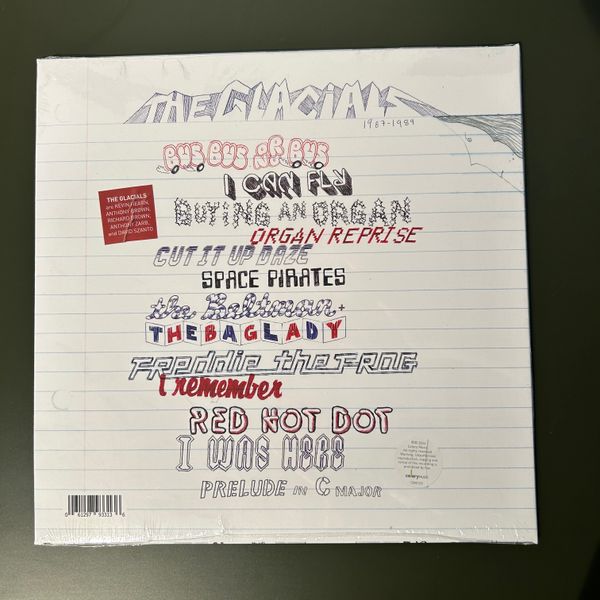 THE GLACIALS
1987-1989
BUS BUS OR BUS
I CAN FLY
BUYING AN ORGAN
ORGAN REPRISE
THE GLACIALS
are KEVIN HEARN,
ANTHONY BROWN,
RICHARD BROWN,
ANTHONY ZARB,
and DAVID SZANTO
CUT IT UP DAZE
SPACE PIRATES
the Beltman +
THE BAG LADY
Freddie the FROG
I remember
RED HOT DOT
I WAS HERE
PRELUDE IN C MAJOR
celery music
0 61297 93313 6